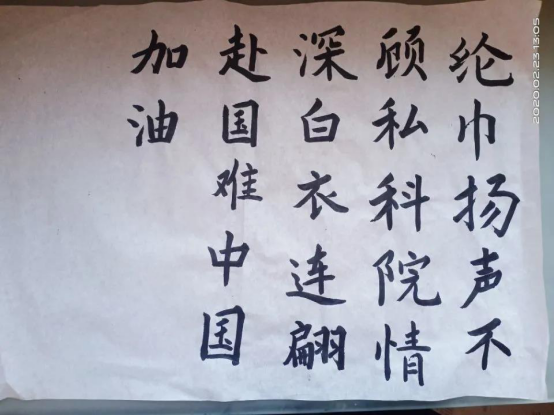 纶巾扬声不
顾私科院情
深白衣连翩
赴国难中国
加油
2020.02.23 13:05